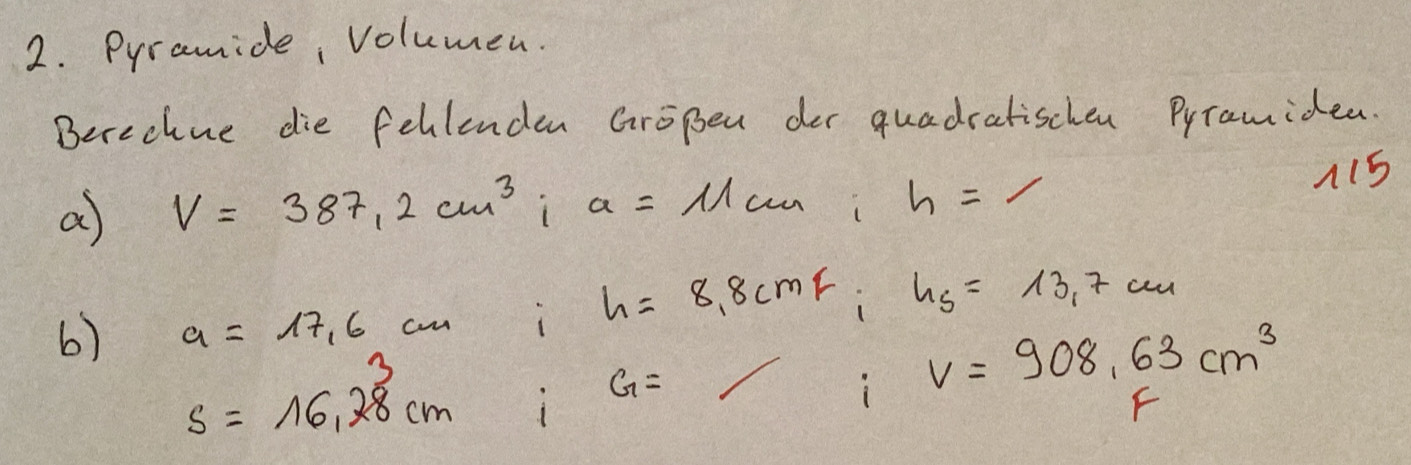 2. Pyramide, Volumen.
Berechne die fehlenden Größen der quadratischen Pyramiden.
1/5
a) V = 387,2 cm³ ; a = 11 cm ; h = /
b) a = 17,6 cm ; h = 8,8cm F ; hs = 13,7 cm
3
s = 16,28 cm ; G = / ; V = 908,63 cm³
F